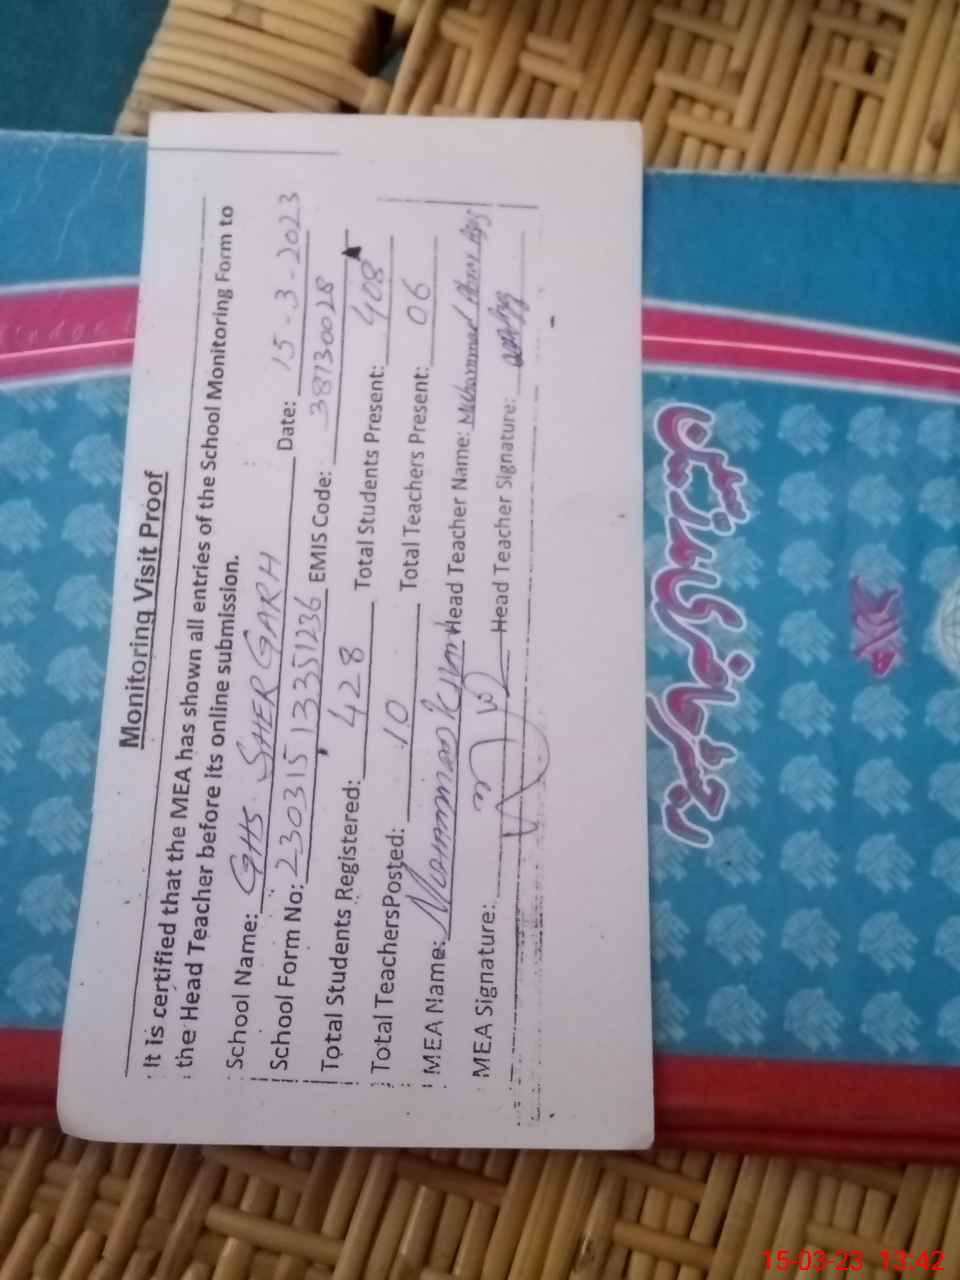 Monitoring Visit Proof
It is certified that the MEA has shown all entries of the School Monitoring Form to
the Head Teacher before its online submission.
School Name: GHS SHER GARH Date: 15-3-2023
School Form No: 23031513351236 EMIS Code: 38130028
Total Students Registered: 428 Total Students Present: 408
Total TeachersPosted: 10 Total Teachers Present: 06
MEA Name: Head Teacher Name: Muhammad
MEA Signature: Head Teacher Signature:
رجسٹر حاضری اساتذہ
15-03-23 13:42